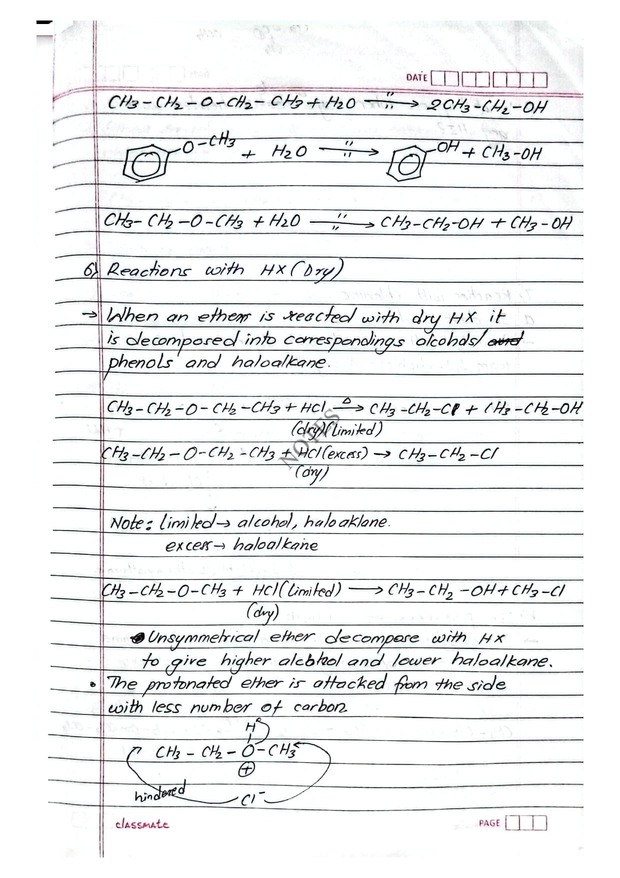 DATE
CH3-CH2-O-CH2-CH3+H2O → 2CH3-CH2-OH
O-CH3 + H2O → OH + CH3-OH
CH3-CH2-O-CH3 + H2O → CH3-CH2-OH + CH3-OH
6) Reactions with HX (Dry)
→ When an ethers is reacted with dry HX it
is decomposed into correspondings alcohols/ and
phenols and haloalkane.
CH3-CH2-O-CH2-CH3+HCl △→ CH3-CH2-Cl + CH3-CH2-OH
(dry)(limited)
CH3-CH2-O-CH2-CH3 + HCl(excess) → CH3-CH2-Cl
(dry)
NOTES
Note: limited→ alcohol, haloaklane.
excess→ haloalkane
CH3-CH2-O-CH3 + HCl(limited) → CH3-CH2-OH+CH3-Cl
(dry)
Unsymmetrical ether decompose with HX
to give higher alcohol and lower haloalkane.
• The protonated ether is attacked from the side
with less number of carbon
H
CH3-CH2-O-CH3
⊕
hindered
Cl-
classmate
PAGE